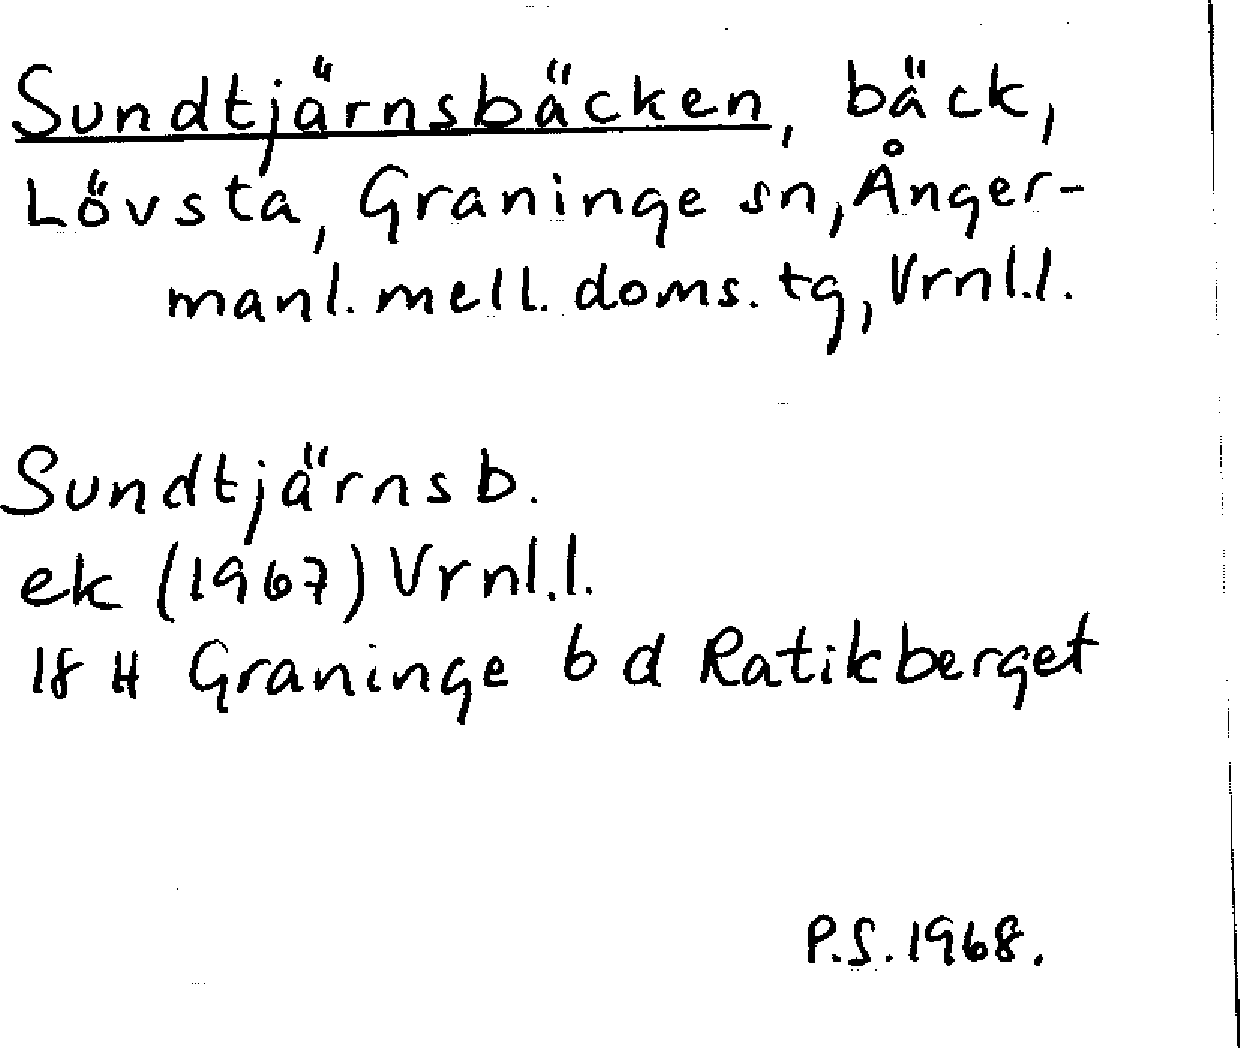 Sundtjärnsbäcken, bäck,
Lövsta, Graninge sn, Ånger-
manl. mell. doms. tg, Vrnl.l.
Sundtjärnsb.
ek (1967) Vrnl.l.
18 H Graninge 6 d Ratikberget
P.S. 1968.